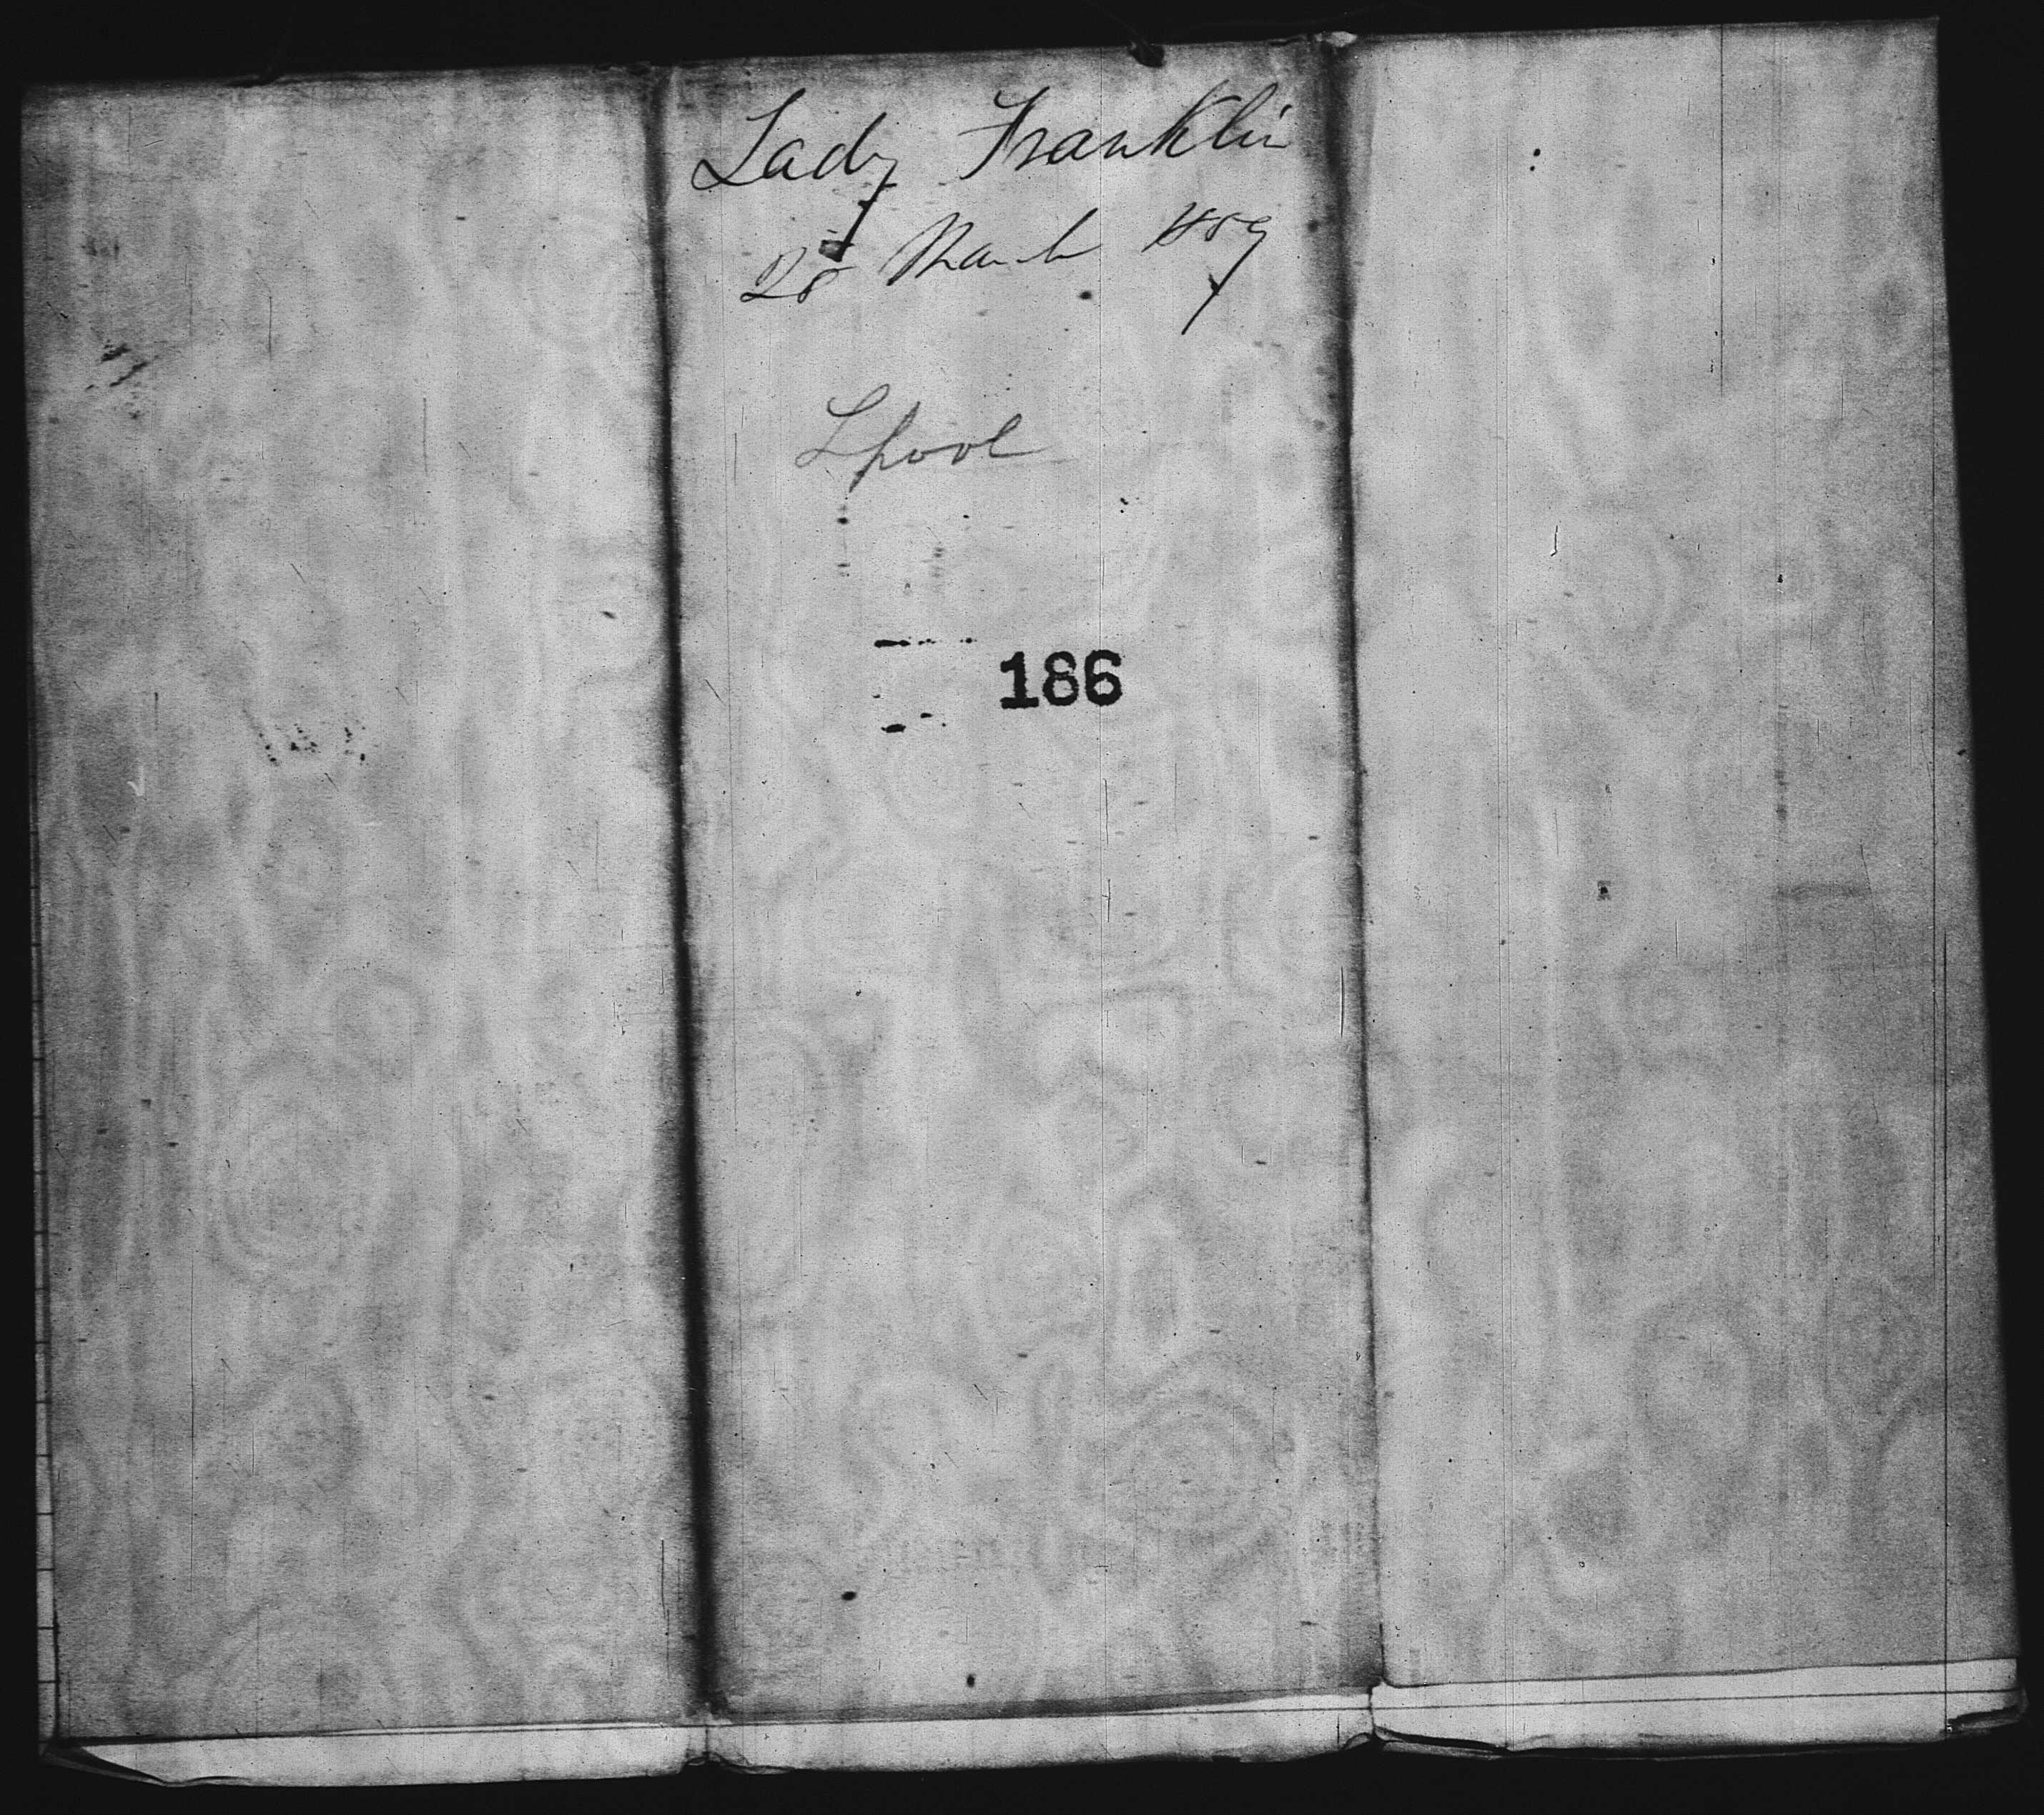 Lady Franklin
28 March 1859
Lpool
186